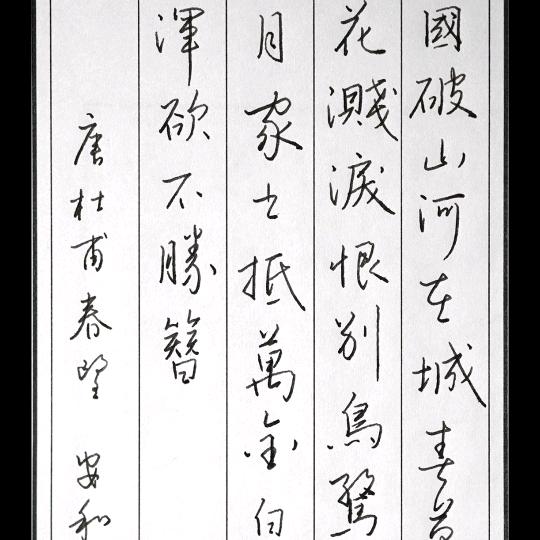 國破山河在城春
花濺淚恨別鳥驚
月家书抵萬金白
渾欲不勝簪
唐杜甫春望 安和